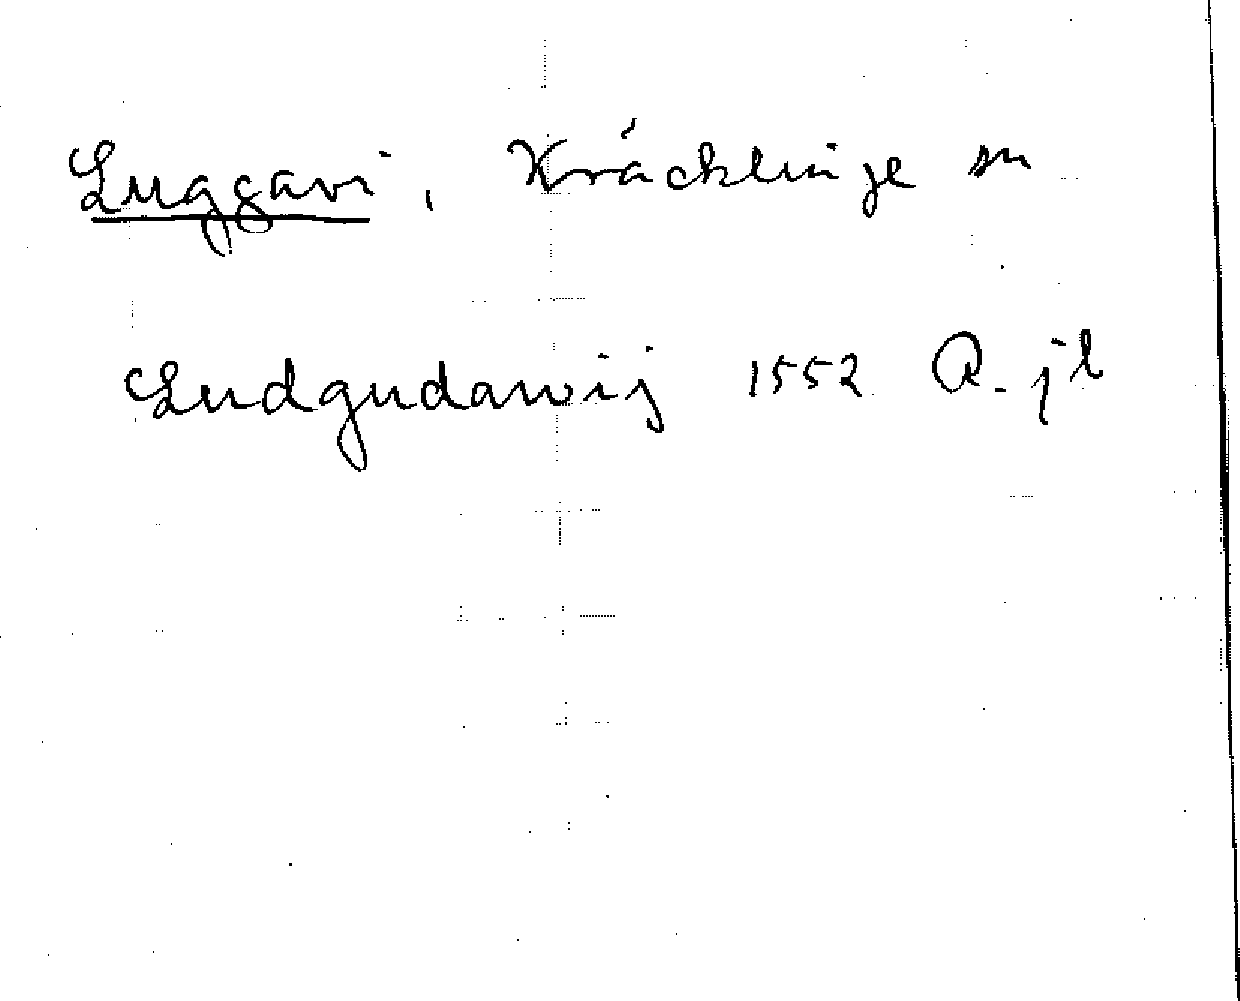 Luggavi, Kräcklinge sn
Ludgudawij 1552 R. jb